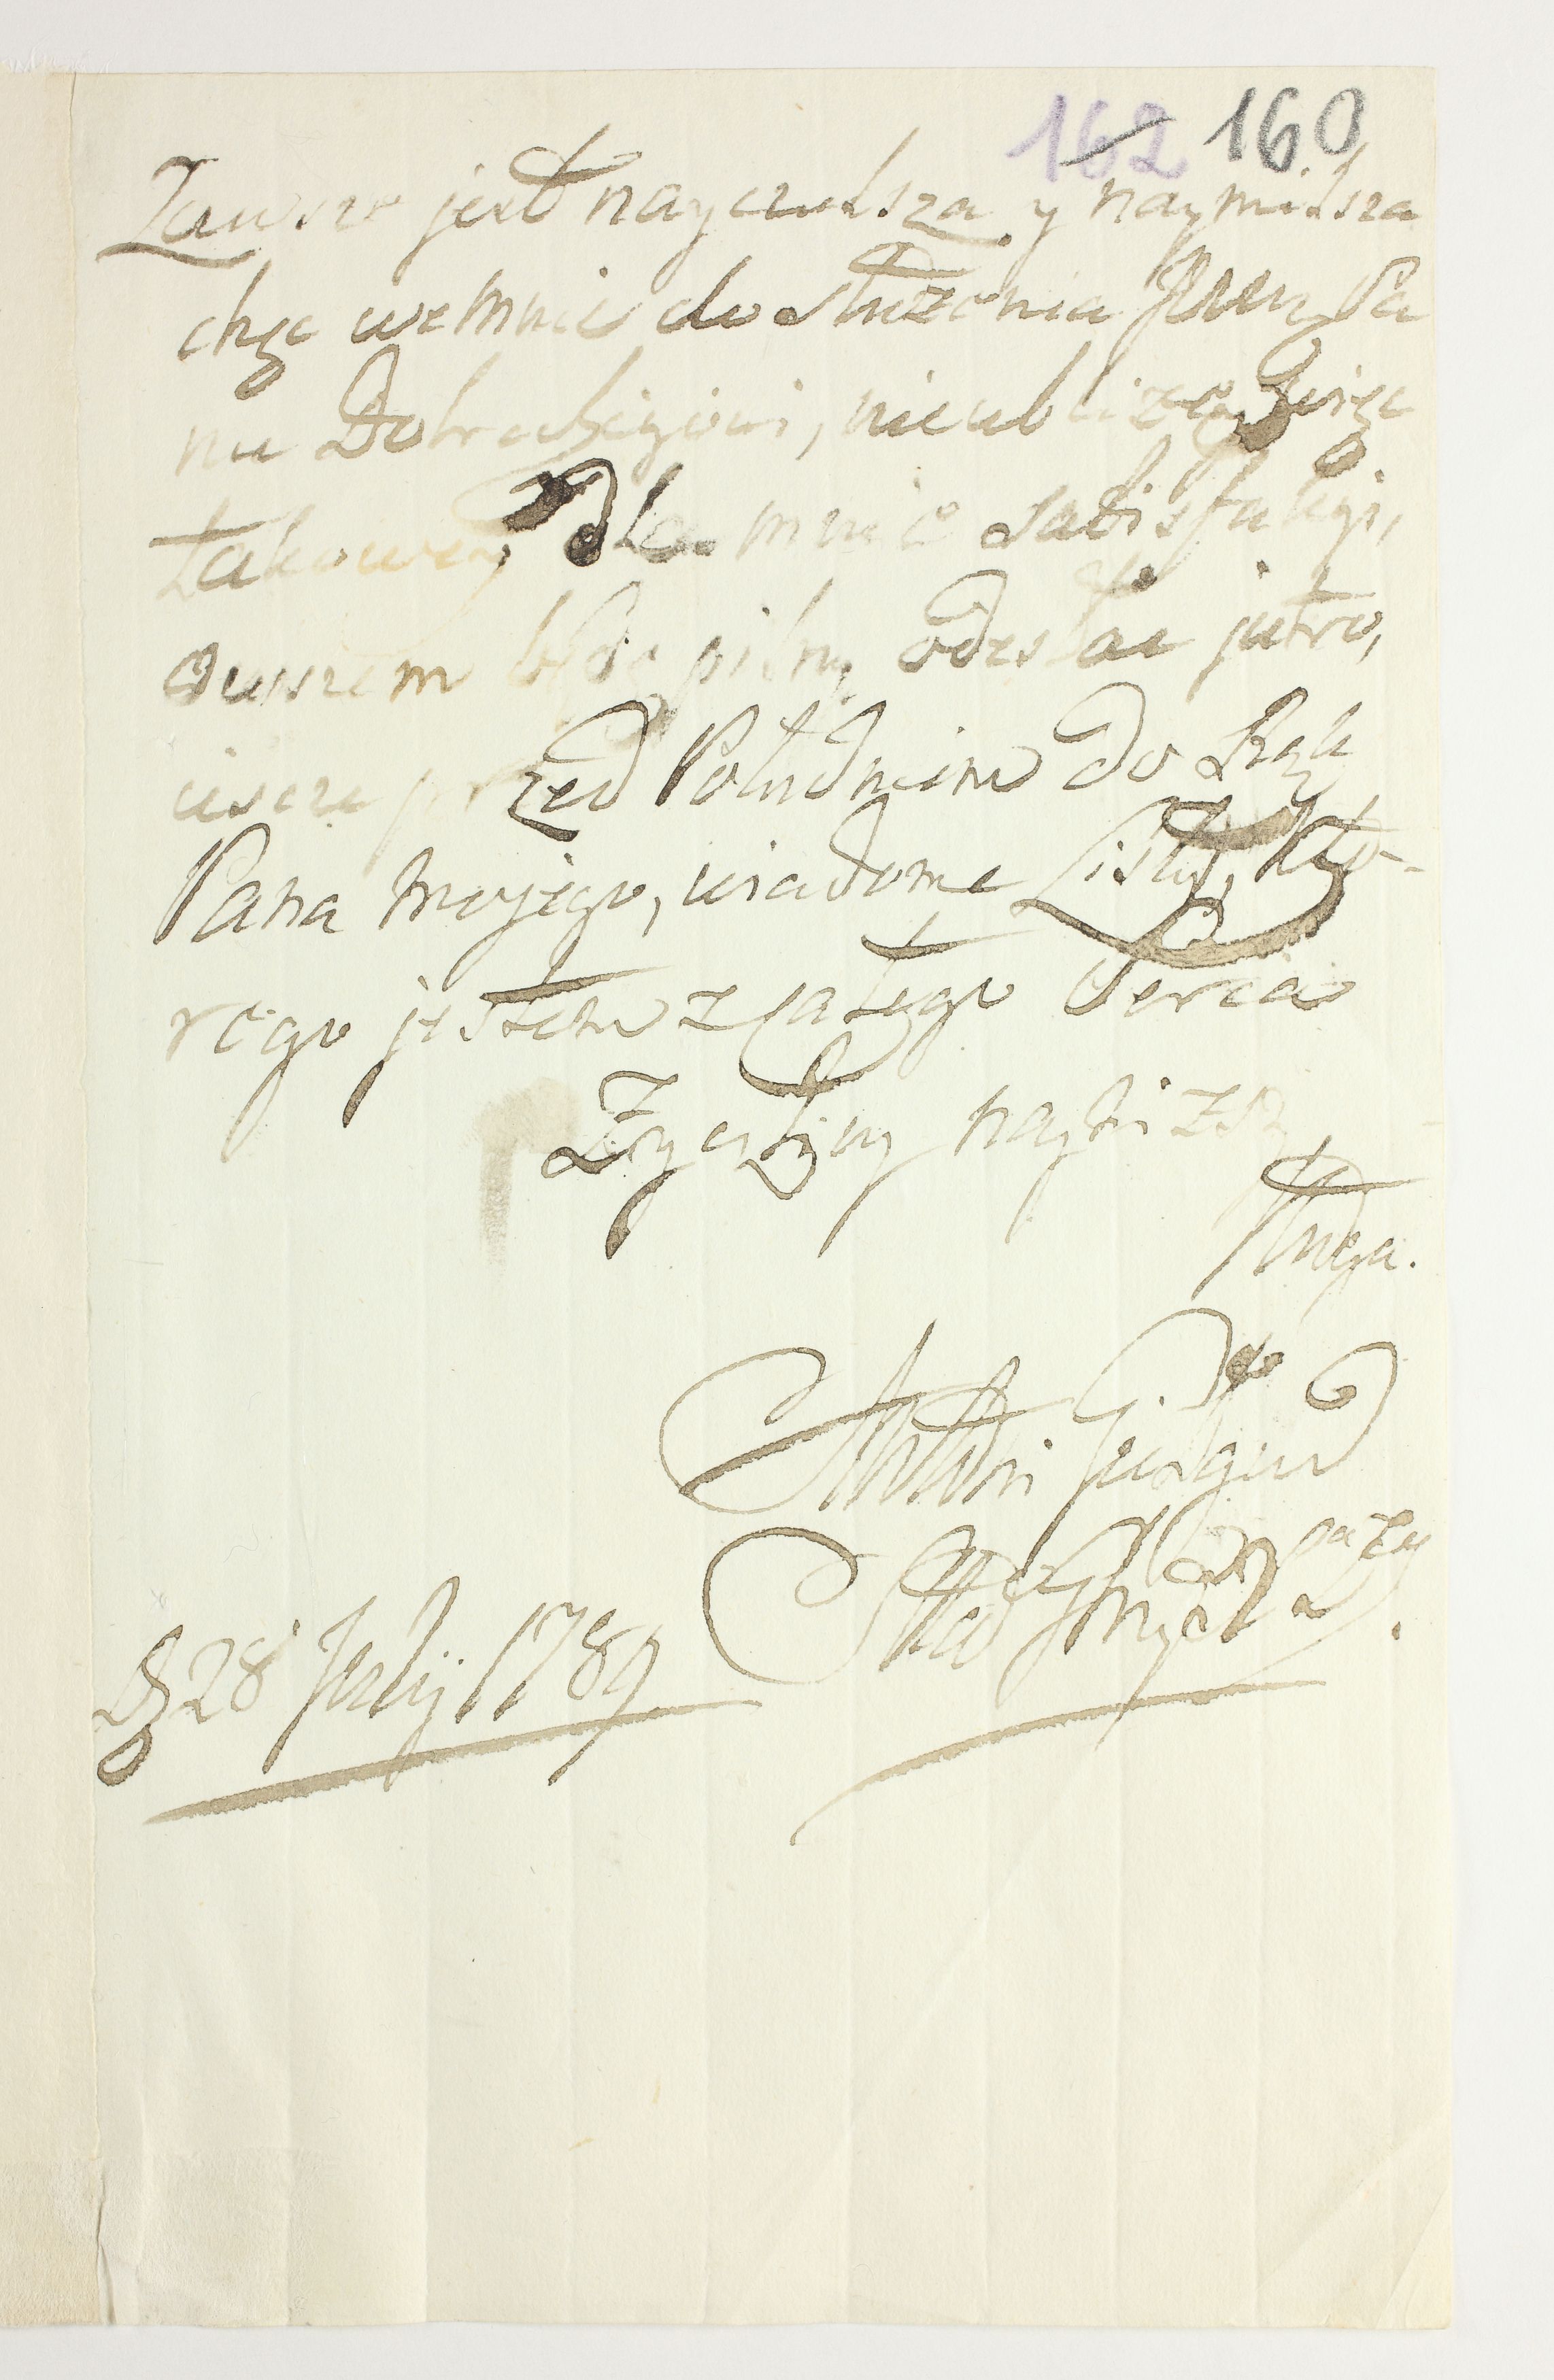 162 160
Zawsze jest nayczulsza y naymilsza
chęc wemnie do służenia JWWy Pa
nu Dobrodziejowi, nieubliżaiąc więc
takowey dla mnie satisfakcyi,
owszem będę pilny odesłac jutro,
iescze przed Południem do Rąk
Pana mojego, wiadome Listy, Któ-
rego jestem z całego Serca
Życzliwy nayniższy
sługa.
D 28 Julij 1789